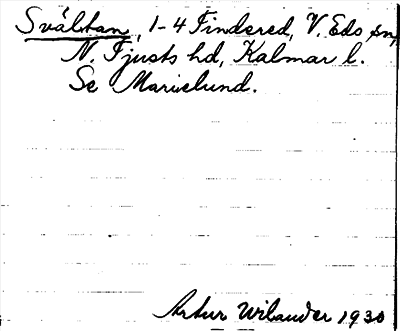 Svältan, 1-4 Findsred, V. Eds sn,
N. Tjusts hd, Kalmar l.
Se Marielund.
Artur Wilander 1930